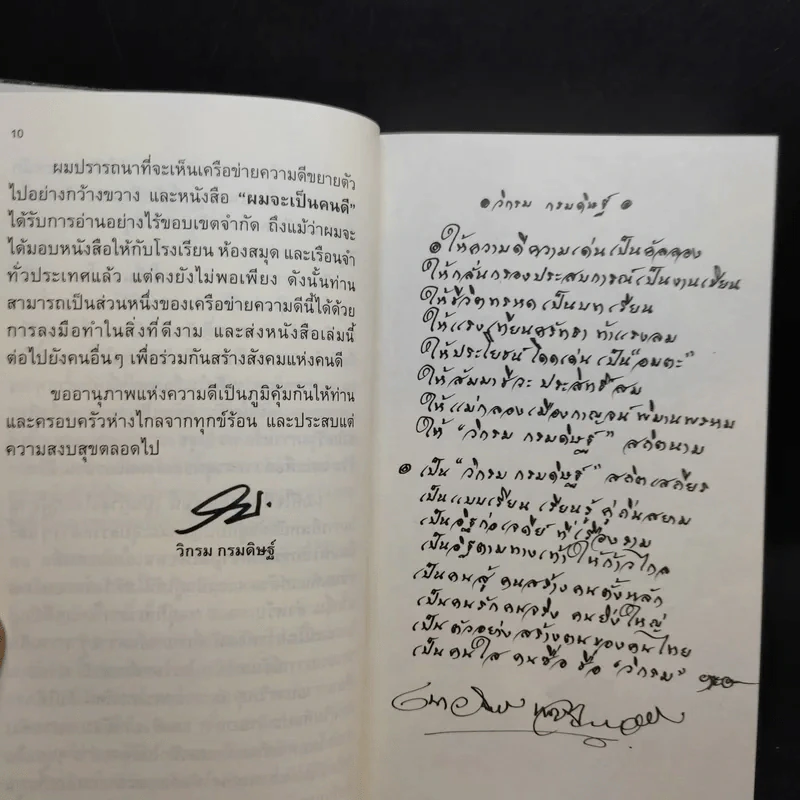 10
ผมปรารถนาที่จะเห็นเครือข่ายความดีขยายตัว
ไปอย่างกว้างขวาง และหนังสือ “ผมจะเป็นคนดี”
ได้รับการอ่านอย่างไร้ขอบเขตจำกัด ถึงแม้ว่าผมจะ
ได้มอบหนังสือให้กับโรงเรียน ห้องสมุด และเรือนจำ
ทั่วประเทศแล้ว แต่คงยังไม่พอเพียง ดังนั้นท่าน
สามารถเป็นส่วนหนึ่งของเครือข่ายความดีนี้ได้ด้วย
การลงมือทำในสิ่งที่ดีงาม และส่งหนังสือเล่มนี้
ต่อไปยังคนอื่นๆ เพื่อร่วมกันสร้างสังคมแห่งคนดี
ขออานุภาพแห่งความดีเป็นภูมิคุ้มกันให้ท่าน
และครอบครัวห่างไกลจากทุกข์ร้อน และประสบแต่
ความสงบสุขตลอดไป
วิกรม กรมดิษฐ์
วิกรม กรมดิษฐ์
ให้ความดีความเด่นเป็น
ให้กลั่นกรองประสบการณ์เป็นงานเขียน
ให้ชีวิตทรหดเป็นบทเรียน
ให้แรงเทียนศรัทธา ท้าแรงลม
ให้ประโยชน์โดดเด่น เป็น“อมตะ”
ให้สัมมาชีวะ ประสิทธิ์สม
ให้แม่กลองเมืองกาญจน์พิมานพรหม
ให้ “วิกรม กรมดิษฐ์” สถิตนาม
เป็น “วิกรม กรมดิษฐ์” สถิตเสถียร
เป็นแบบเรียน เรียนรู้ คู่ถิ่นสยาม
เป็นอิฐก่อเจดีย์ ที่เรืองงาม
เป็นอิฐตามทางเท้า ให้ก้าวไกล
เป็นคนสู้ คนสร้าง คนตั้งหลัก
เป็นคนรัก คนจริง คนยิ่งใหญ่
เป็นตัวอย่างสร้างตนของคนไทย
เป็นคนใส คนซื่อ ชื่อ “วิกรม”